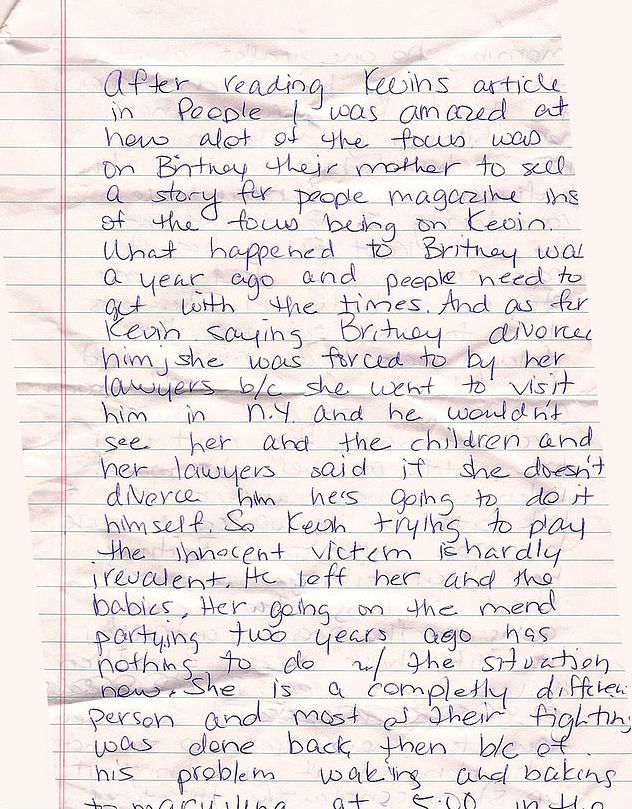 After reading Kevins article
in People I was amazed at
how alot of the focus was
on Britney their mother to sell
a story for people magazine ins
of the focus being on Kevin.
What happened to Britney was
a year ago and people need to
get with the times. And as for
Kevin saying Britney divorced
him, she was forced to by her
lawyers b/c she went to visit
him in N.Y. and he wouldn't
see her and the children and
her lawyers said if she doesn't
divorce him he's going to do it
himself. So Kevin trying to play
the innocent victem is hardly
irevalent. He left her and the
babies. Her going on the mend
partying two years ago has
nothing to do w/ the situation
now. She is a completly differen
person and most of their fighting
was done back then b/c of
his problem waking and baking
to marijuana at 5:00 in the